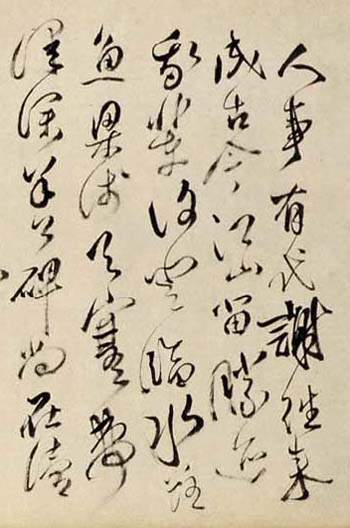 人事有代謝往来
成古今江山留勝迹
我輩復登臨水落
魚梁浅天寒夢
澤深羊公碑尚在讀